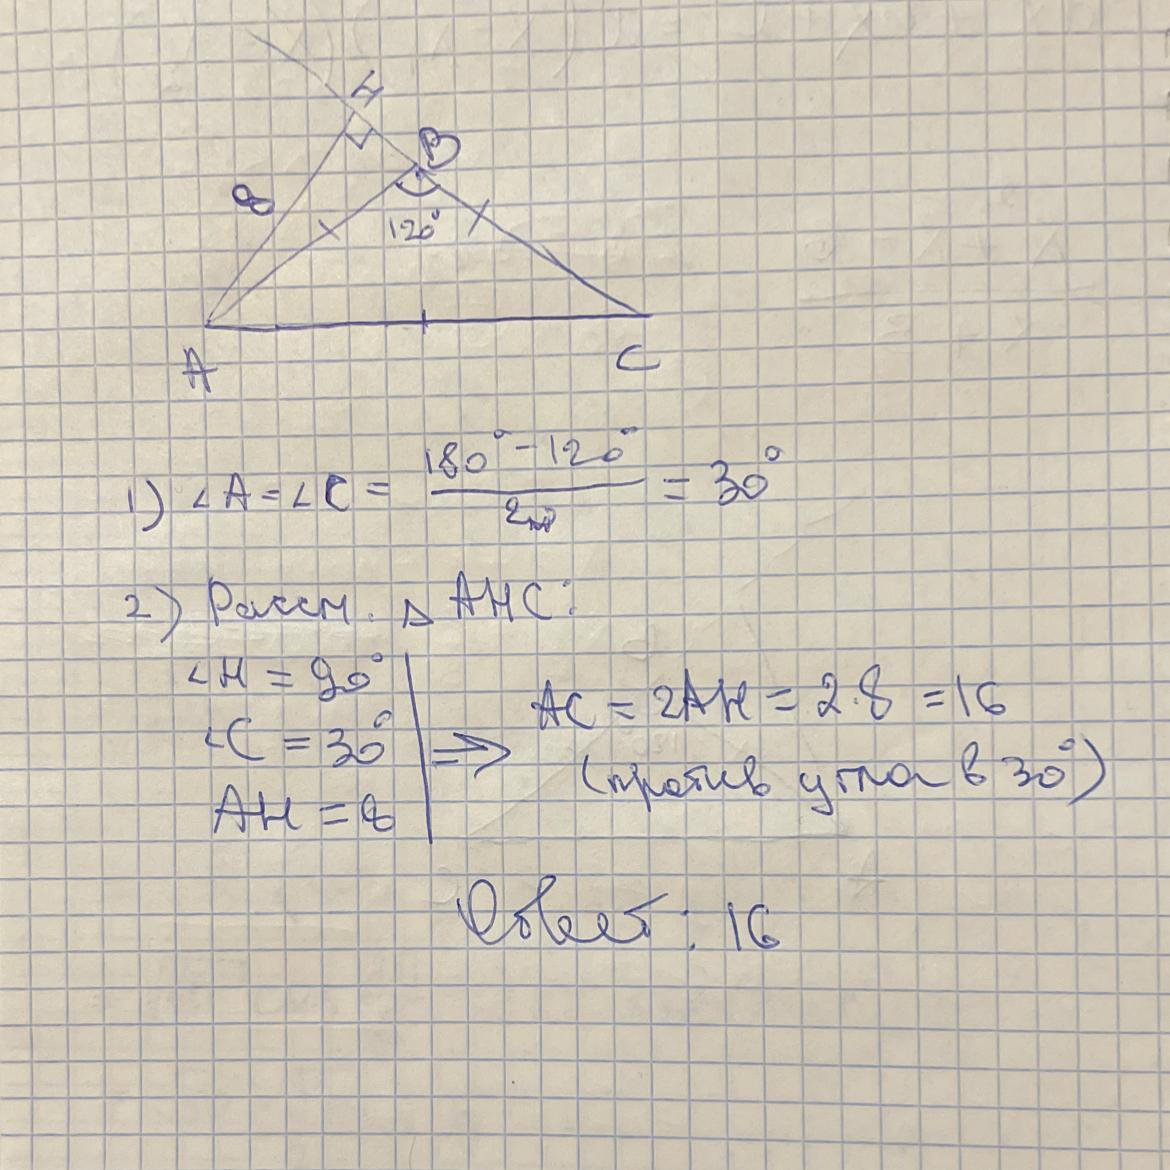 H
B
8
120°
A
C
1) ∠A = ∠C = (180° - 120°) / 2 = 30°
2) Рассм. △ AHC:
∠H = 90°
∠C = 30°
AH = 8
⇒ AC = 2AH = 2·8 = 16
(против угла в 30°)
Ответ: 16